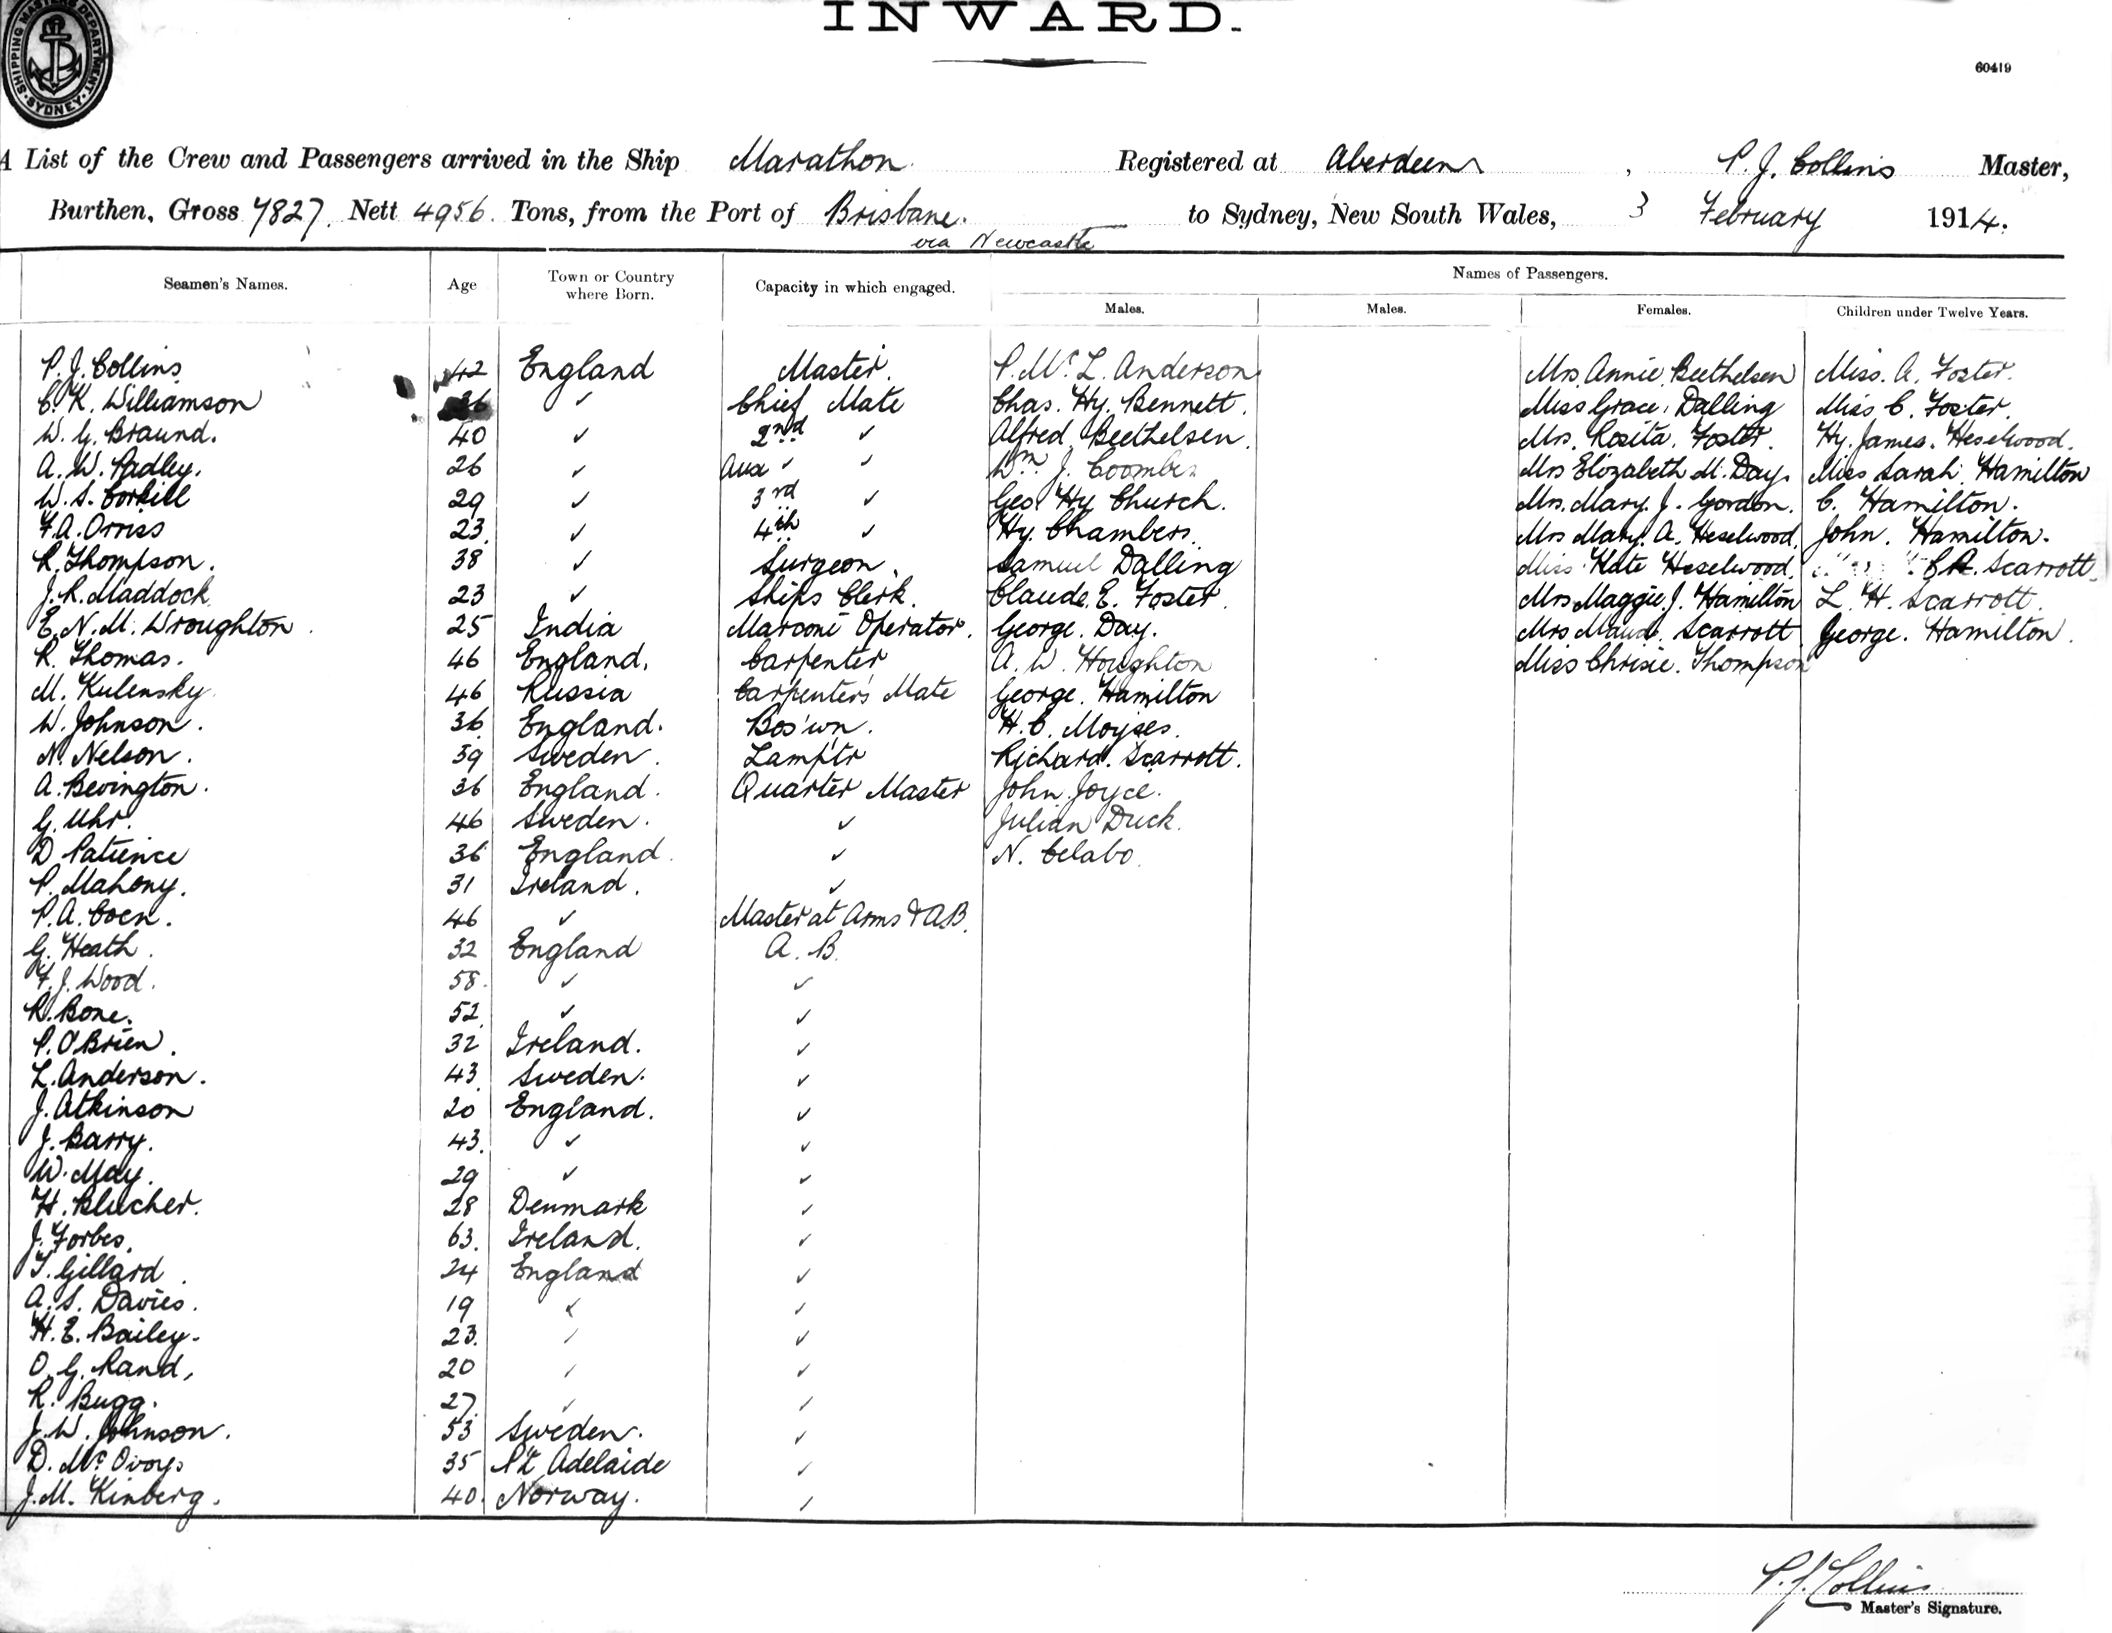 SHIPPING MASTERS DEPARTMENT · SYDNEY ·
INWARD.
60419
A List of the Crew and Passengers arrived in the Ship Marathon Registered at Aberdeen, P. J. Collins Master,
Burthen, Gross 7827. Nett 4956. Tons, from the Port of Brisbane. to Sydney, New South Wales, 3 February 1914.
via Newcastle
Seamen's Names. Age Town or Country where Born. Capacity in which engaged. Names of Passengers.
Males. Males. Females. Children under Twelve Years.
P. J. Collins 42 England Master. P. Mc. L. Anderson Mrs Annie Beethelsen Miss. A. Foster.
C. K. Williamson 36 ✓ Chief Mate Chas. Hy. Bennett. Miss Grace. Dalling Miss C. Foster.
W. G. Braund. 40 ✓ 2nd ✓ Alfred Beethelsen. Mrs. Rosita. Foster. Hy. James. Heselwood.
A. W. Padley. 26 ✓ Aux ✓ ✓ Wm J. Coombes Mrs Elizabeth M. Day. Miss Sarah. Hamilton
W. S. Corkill 29 ✓ 3rd ✓ Geo Hy Church. Mrs. Mary. J. Gordon. C. Hamilton.
F. A. Orriss 23. ✓ 4th ✓ Hy. Chambers. Mrs Mary. A. Heselwood. John. Hamilton.
R. Thompson. 38 ✓ Surgeon. Samuel Dalling Miss Kate Heselwood. Scarrott.
J. R. Maddock 23 ✓ Ships Clerk. Claude. E. Foster. Mrs Maggie. J. Hamilton L. H. Scarrott.
E. N. M. Wroughton. 25 India Marconi Operator. George. Day. Mrs Maud. Scarrott George. Hamilton.
R. Thomas. 46 England. Carpenter A. W. Houghton Miss Chrisie. Thompson
M. Kulensky 46 Russia Carpenter's Mate George. Hamilton
W. Johnson. 36 England. Bos'wn. H. C. Moyses.
N. Nelson. 39 Sweden. Lamptr Richard. Scarrott.
A. Bevington. 36 England. Quarter Master John Joyce.
G. Uhr. 46 Sweden. ✓ Julian Duck.
D Patience 36 England. ✓ N. Celabo.
P. Mahony. 31 Ireland. ✓
P. A. Coen. 46 ✓ Master at Arms & A.B.
G. Heath. 32 England A. B.
F. J. Wood. 58. ✓ ✓
R. Bone. 52. ✓ ✓
P. O'Brien. 32 Ireland. ✓
L. Anderson. 43 Sweden. ✓
J. Atkinson 20 England. ✓
J. Barry. 43. ✓ ✓
W. May. 29 ✓ ✓
H. Blucher. 28 Denmark ✓
J. Forbes. 63. Ireland. ✓
T. Gillard. 24 England ✓
A. S. Davies. 19 ✓ ✓
H. E. Bailey. 23. ✓ ✓
O. G. Rand, 20 ✓ ✓
R. Bugg. 27. ✓ ✓
J. W. Johnson. 53 Sweden. ✓
D. Mc Ovoys 35 Pt Adelaide ✓
J. M. Kinberg. 40. Norway. ✓
P. J. Collins
Master's Signature.